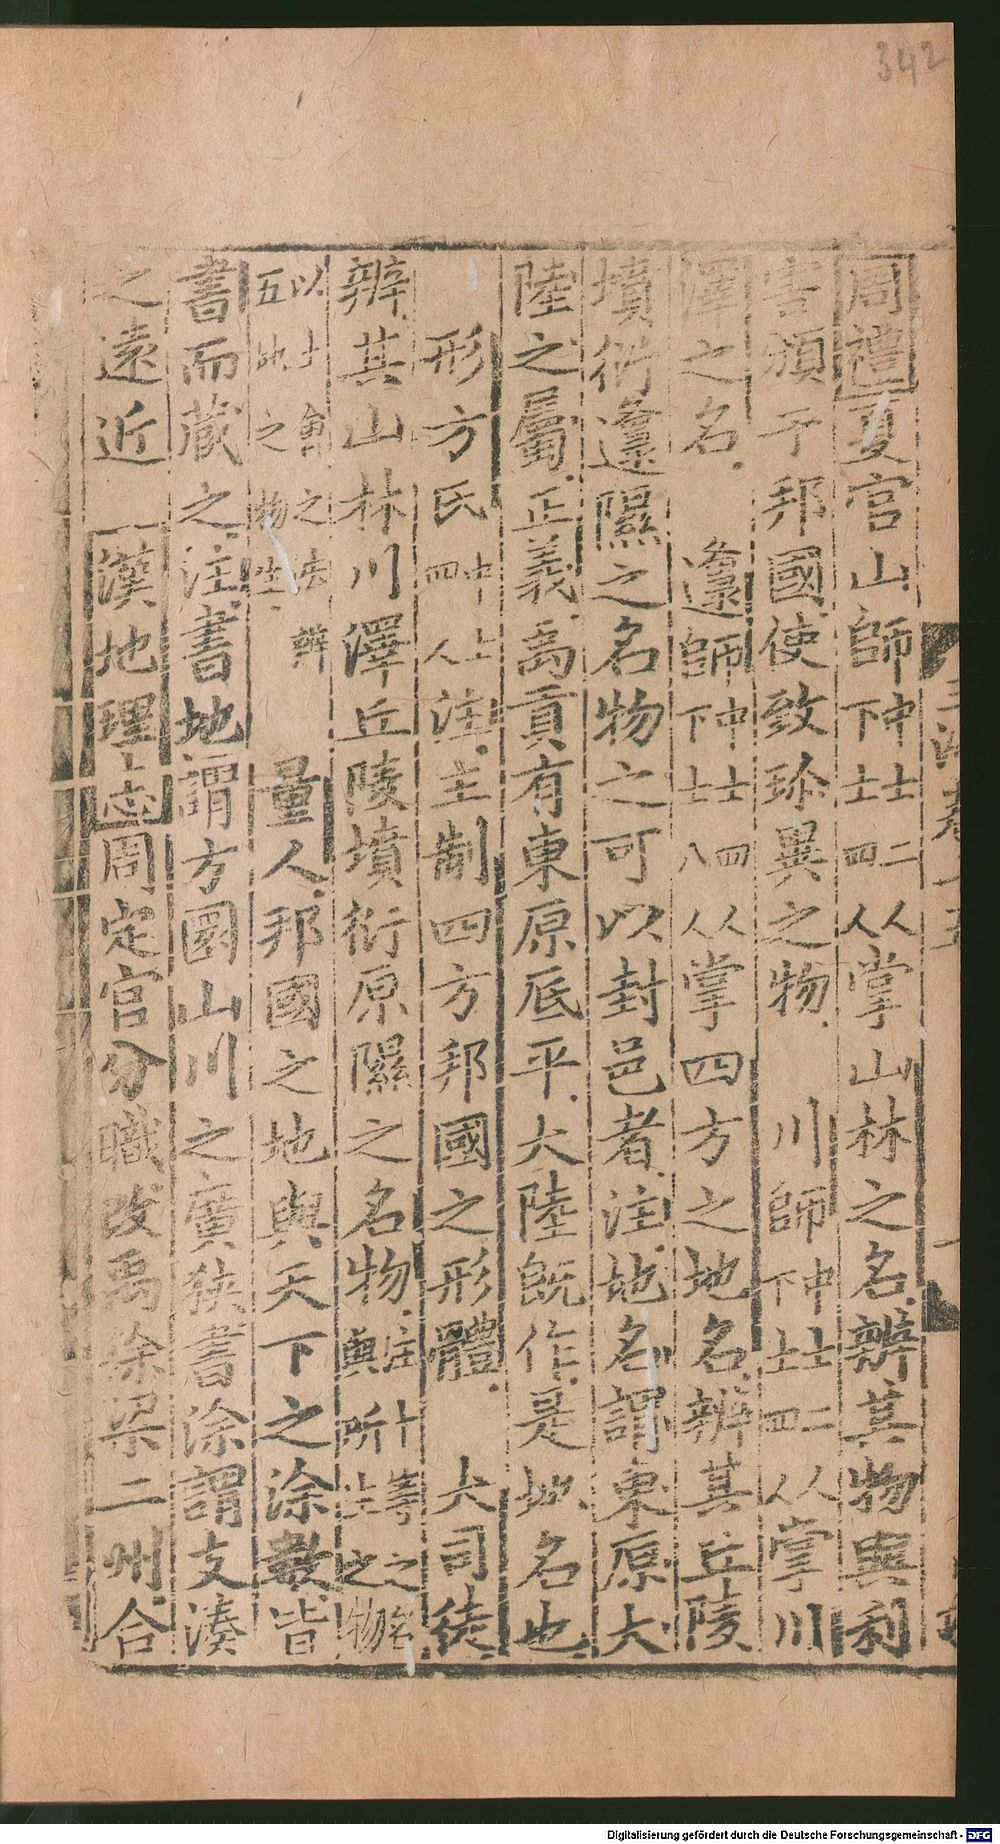 342
周禮夏官山師中士二人下士四人掌山林之名辨其物與利
害頒于邦國使致珍異之物 川師中士二人下士四人掌川
澤之名 邍師中士四人下士八人掌四方之地名辨其丘陵
墳衍邍隰之名物之可以封邑者注地名謂東原大
陸之屬正義禹貢有東原底平大陸旣作是地名也
形方氏中士四人注主制四方邦國之形體 大司徒
辨其山林川澤丘陵墳衍原隰之名物注十等之名與所生之物
以土會之法辨五地之物生 量人邦國之地與天下之涂數皆
書而藏之注書地謂方圜山川之廣狹書涂謂支湊
之遠近 漢地理志周定官分職改禹徐梁二州合
Digitalisierung gefördert durch die Deutsche Forschungsgemeinschaft - DFG